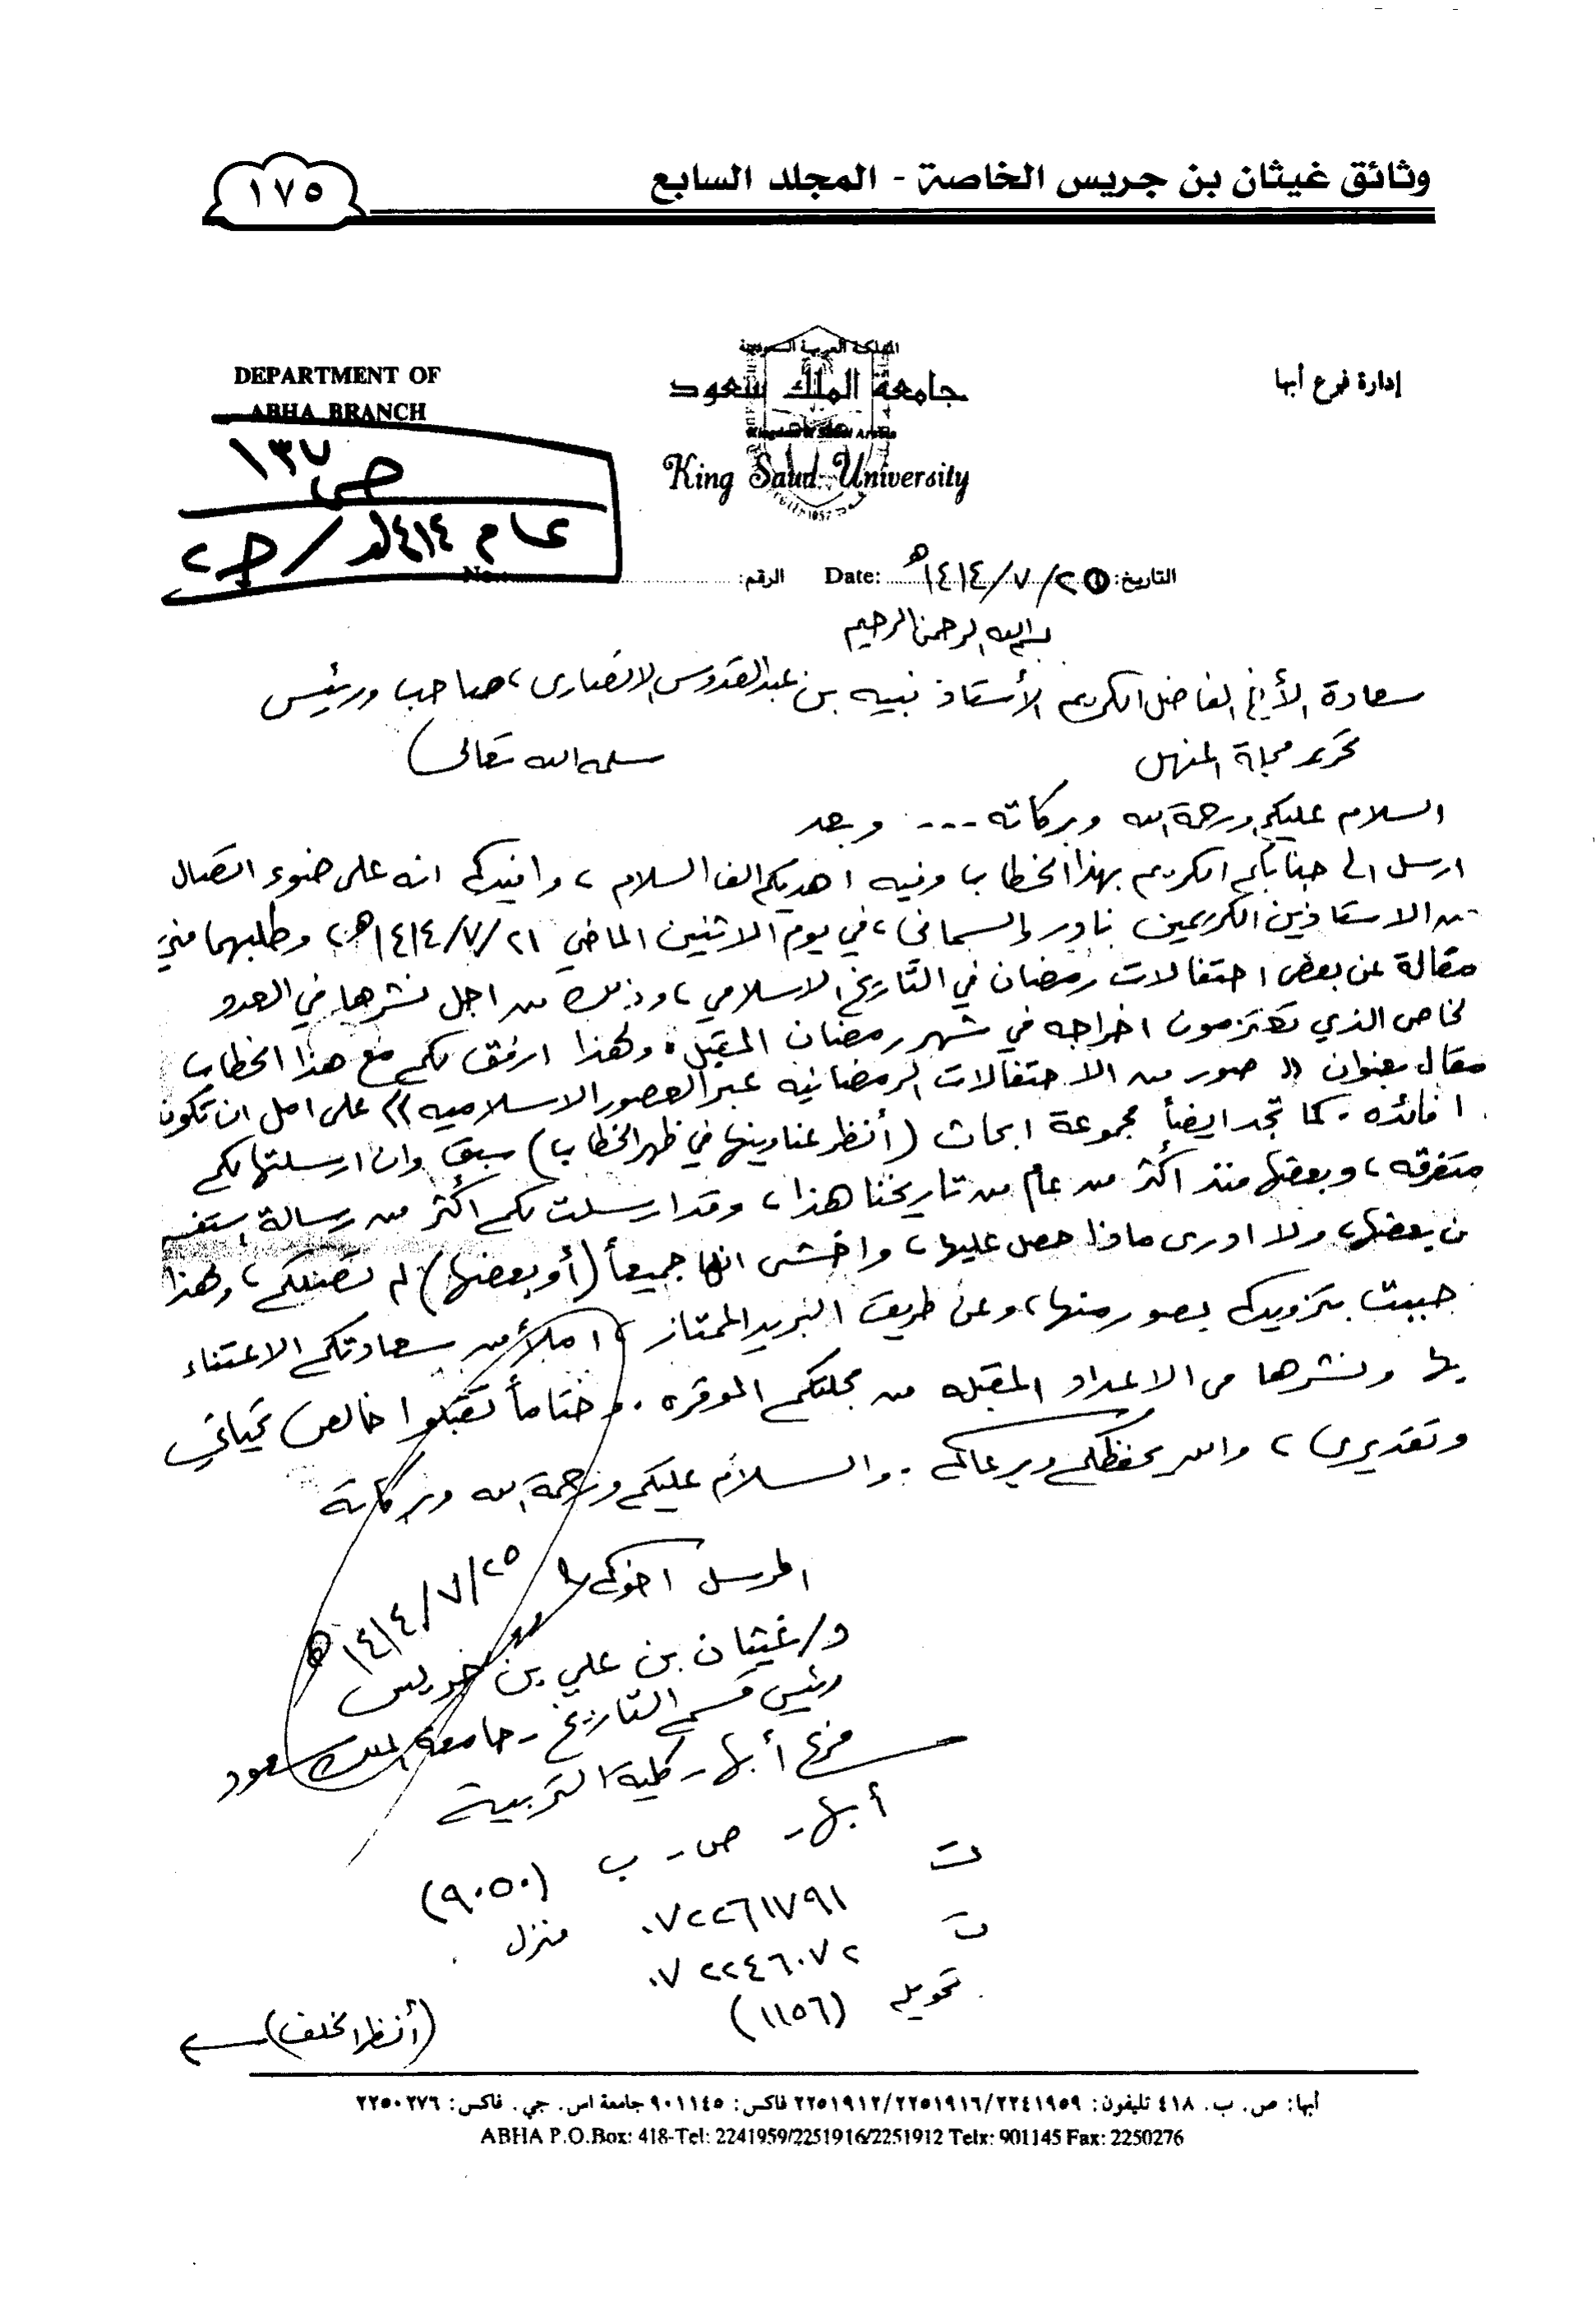 وثائق غيثان بن جريس الخاصة - المجلد السابع
١٧٥
إدارة فرع أبها
المملكة العربية السعودية
جامعة الملك سعود
Kingdom of Saudi Arabia
King Saud University
1957
DEPARTMENT OF
ABHA BRANCH
ص ١٣٧
عام ١٤١٤هـ / جـ ٢
التاريخ: ٢٥/٧/١٤١٤هـ Date: الرقم: No.:
بسم الله الرحمن الرحيم
سعادة الأخ الفاضل الكريم الأستاذ نبيه بن عبدالقدوس الانصاري، صاحب ورئيس
تحرير مجلة المنهل سلمه الله تعالى
السلام عليكم ورحمة الله وبركاته --- وبعد
ارسل الى جنابكم الكريم بهذا الخطاب وفيه اهديكم الف السلام، وافيدكم انه على ضوء اتصال
من الاستاذين الكريمين ناور والسماني، في يوم الاثنين الماضي ٢١/٧/١٤١٤هـ، وطلبهما مني
مقالة عن بعض احتفالات رمضان في التاريخ الاسلامي، وذلك من اجل نشرها في العدد
لخاص الذي تعتزمون اخراجه في شهر رمضان المقبل. ولهذا ارفق لكم مع هذا الخطاب
مقال بعنوان « صور من الاحتفالات الرمضانيه عبر العصور الاسلاميه » على امل ان تكون
ا فائده. كما تجد ايضاً مجموعة ابحاث (أنظر عناوينها في ظهر الخطاب) سبق وان ارسلتها لكم
متفرقه، وبعضها منذ اكثر من عام من تاريخنا هذا، وقد ارسلت لكم اكثر من رسالة استفسـ
ن بعضها، ولا ادرى ماذا حصل عليها، واخشى انها جميعاً (أو بعضها) لم تصلكم، ولهذا
حببت بتزويدكم بصور منها، وعن طريق البريد الممتاز، املاً من سعادتكم الاعتناء
بها ونشرها في الاعداد المقبله من مجلتكم الموقره. وختاماً تقبلوا خالص تحياتي
وتقديري، والله يحفظكم ويرعاكم. والسلام عليكم ورحمة الله وبركاته
المرسل اخوكم
٢٥/٧/١٤١٤هـ
د/ غيثان بن علي بن جريس
رئيس قسم التاريخ - جامعة الملك سعود
فرع أبها - كلية التربية
أبها - ص - ب (٩٠٥٠)
ت ٠٧٢٢٦١٧٩١ منزل
ت ٠٧٢٢٤٦٠٧٢
تحويله (١١٥٦)
(أنظر الخلف)
أبها: ص. ب. ٤١٨ تليفون: ٢٢٤١٩٥٩/٢٢٥١٩١٦/٢٢٥١٩١٢ فاكس: ٩٠١١٤٥ جامعة اس. جي. فاكس: ٢٢٥٠٢٧٦
ABHA P.O.Box: 418-Tel: 2241959/2251916/2251912 Telx: 901145 Fax: 2250276